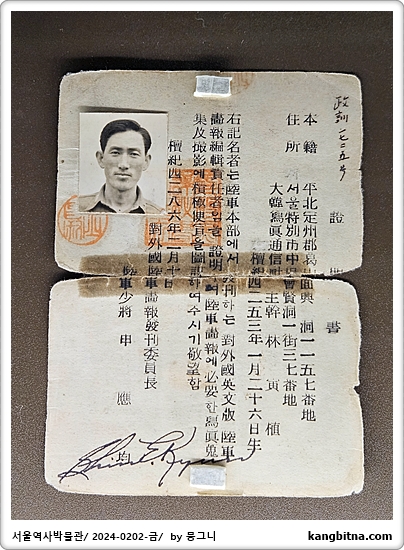 政訓一七二五号
證明書
本籍 平北定州郡葛山面興 洞一一五七番地
住所 서울特別市中 會賢洞一街三七番地
大韓寫眞通信 主幹 林 寅 植
檀紀四二五三年一月二十六日生
右記名者는陸軍本部에서發刊하는 對外國英文版 陸軍
畵報編輯責任者임을 證明 陸軍畵報에必要한寫眞蒐
集及撮影에積極便宜를圖 하여주시기敬望함
檀紀四二八六年二月十 日
對外國陸軍畵報發刊委員長
陸軍少將 申 應 均
서울역사박물관/ 2024-0202-금/ by 뭉그니
kangbitna.com